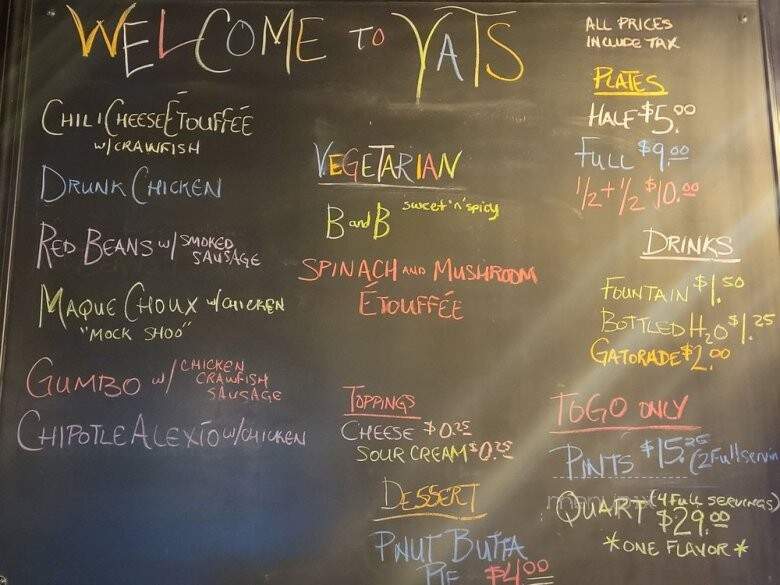 WELCOME TO YATS
CHILI CHEESE ÉTOUFFÉE
W/CRAWFISH
DRUNK CHICKEN
RED BEANS W/ SMOKED
SAUSAGE
MAQUE CHOUX W/CHICKEN
"MOCK SHOO"
GUMBO W/ CHICKEN
CRAWFISH
SAUSAGE
CHIPOTLE ALEXIO W/CHICKEN
VEGETARIAN
B and B sweet 'n' spicy
SPINACH AND MUSHROOM
ÉTOUFFÉE
TOPPINGS
CHEESE $0.25
SOUR CREAM $0.25
DESSERT
PNUT BUTTA
PIE $4.00
ALL PRICES
INCLUDE TAX
PLATES
HALF $5.00
FULL $9.00
1/2 + 1/2 $10.00
DRINKS
FOUNTAIN $1.50
BOTTLED H2O $1.25
GATORADE $2.00
TOGO ONLY
PINTS $15.25 (2 Full servin
QUART (4 FULL SERVINGS)
$29.00
*ONE FLAVOR*